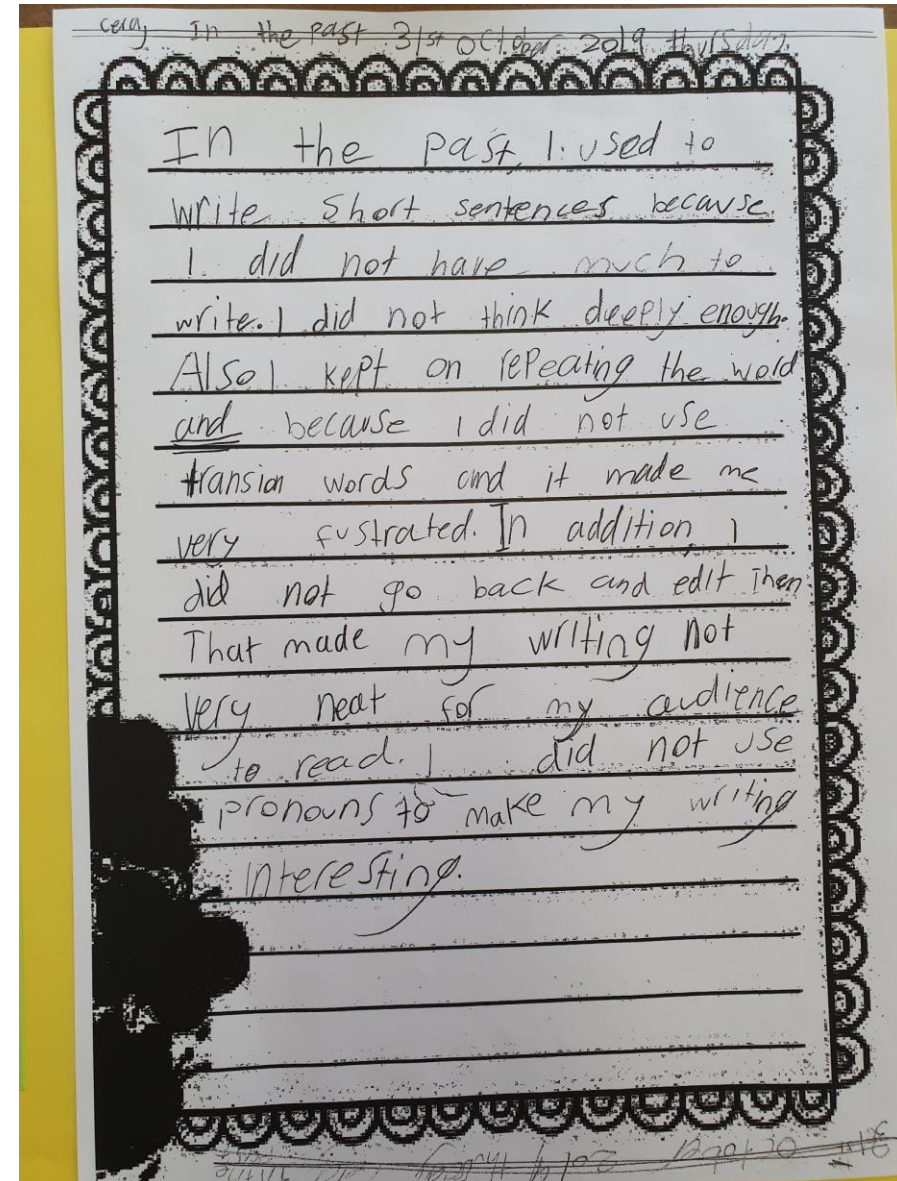 In the past 31st October 2019 thursday.
In the past, I used to
write short sentences because
I did not have much to
write. I did not think deeply enough.
Also I kept on repeating the word
and because I did not use
transion words and it made me
very fustrated. In addition, I
did not go back and edit then
That made my writing not
very neat for my audience
to read. I did not use
pronouns to make my writing
interesting.
31st October